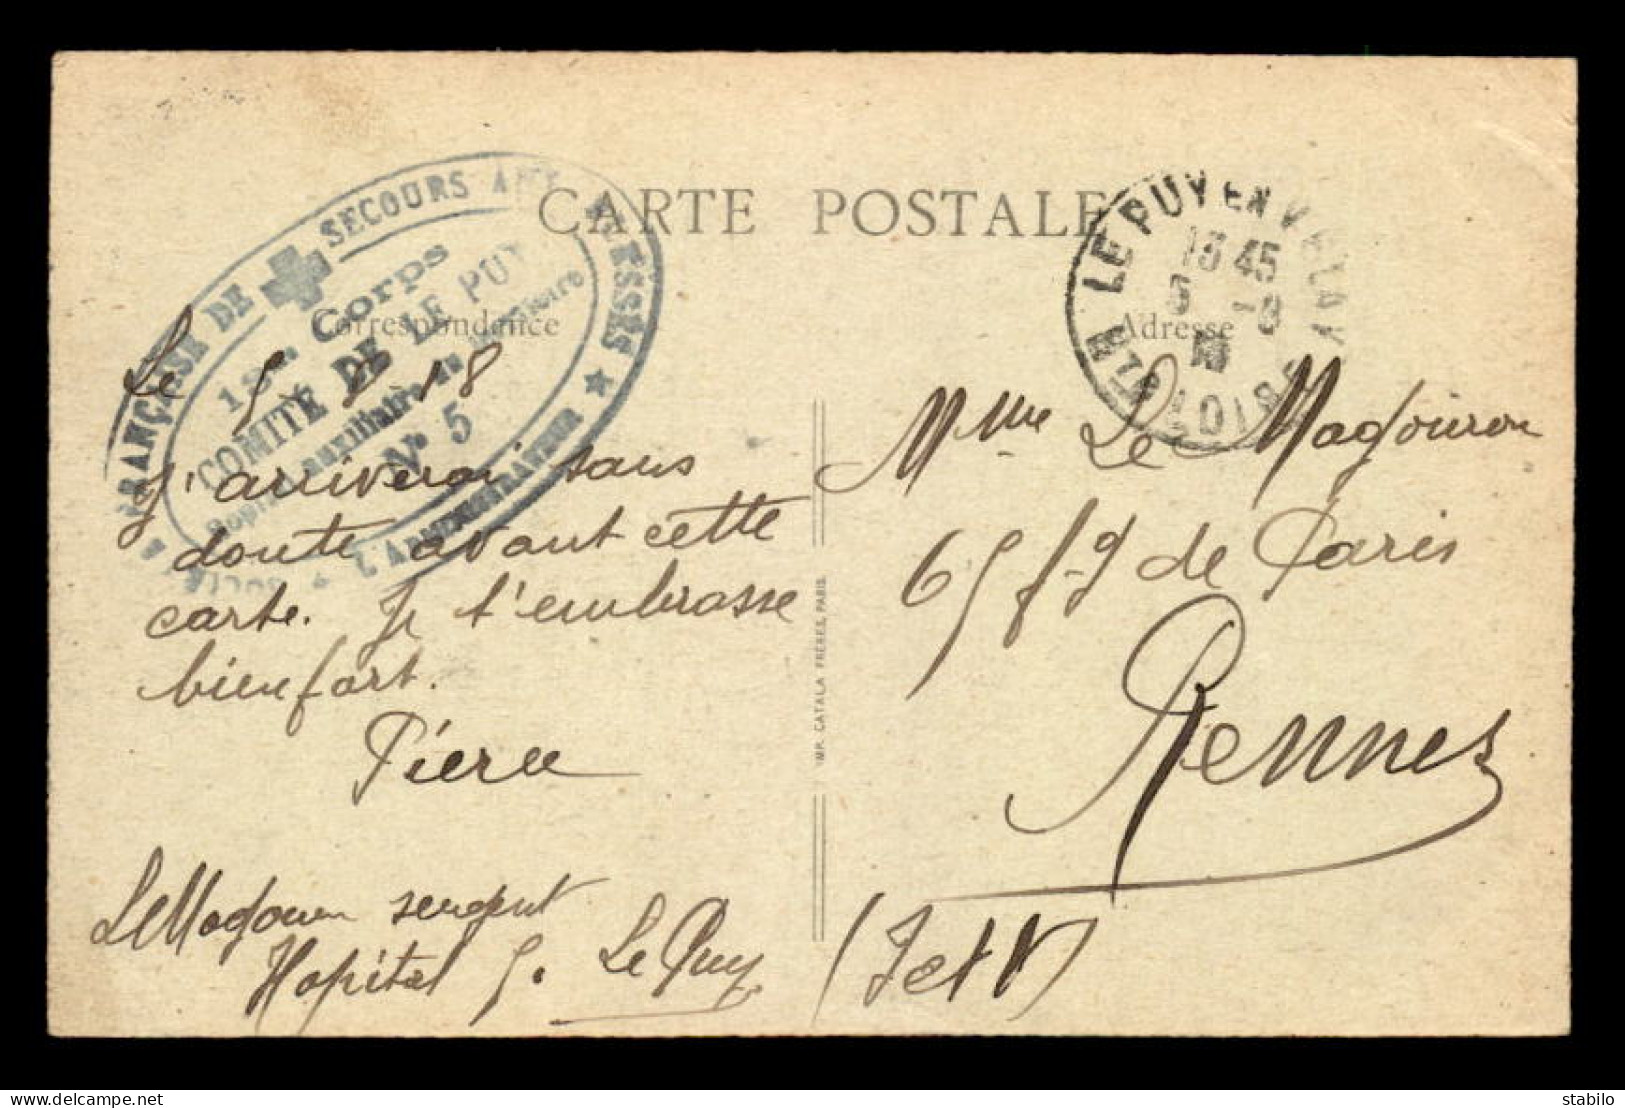 CARTE POSTALE
Correspondance
Adresse
FRANÇAISE DE SECOURS AUX BLESSÉS
L'ADMINISTRATEUR
Corps
COMITÉ DE LE PUY
auxiliaire du Territoire
N° 5
LE PUY EN VELAY
16 45
HTE LOIRE
Le 5 8 18
J'arriverai sans
doute avant cette
carte. Je t'embrasse
bien fort.
Pierre
sergent
Hopital 5. Le Puy
Mme Le
65 f-g de Paris
Rennes
(I et V)
IMP. CATALA FRÈRES, PARIS
delcampe.net
stabilo